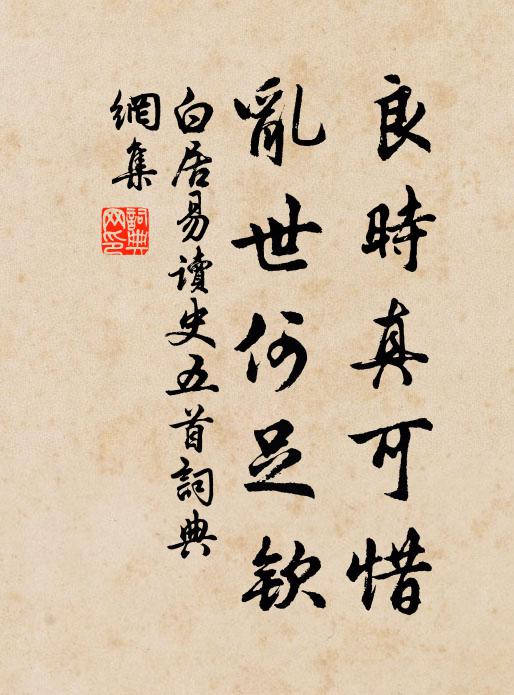 良時真可惜
亂世何足欽
白居易讀史五首詞典
網集
詞典
网印